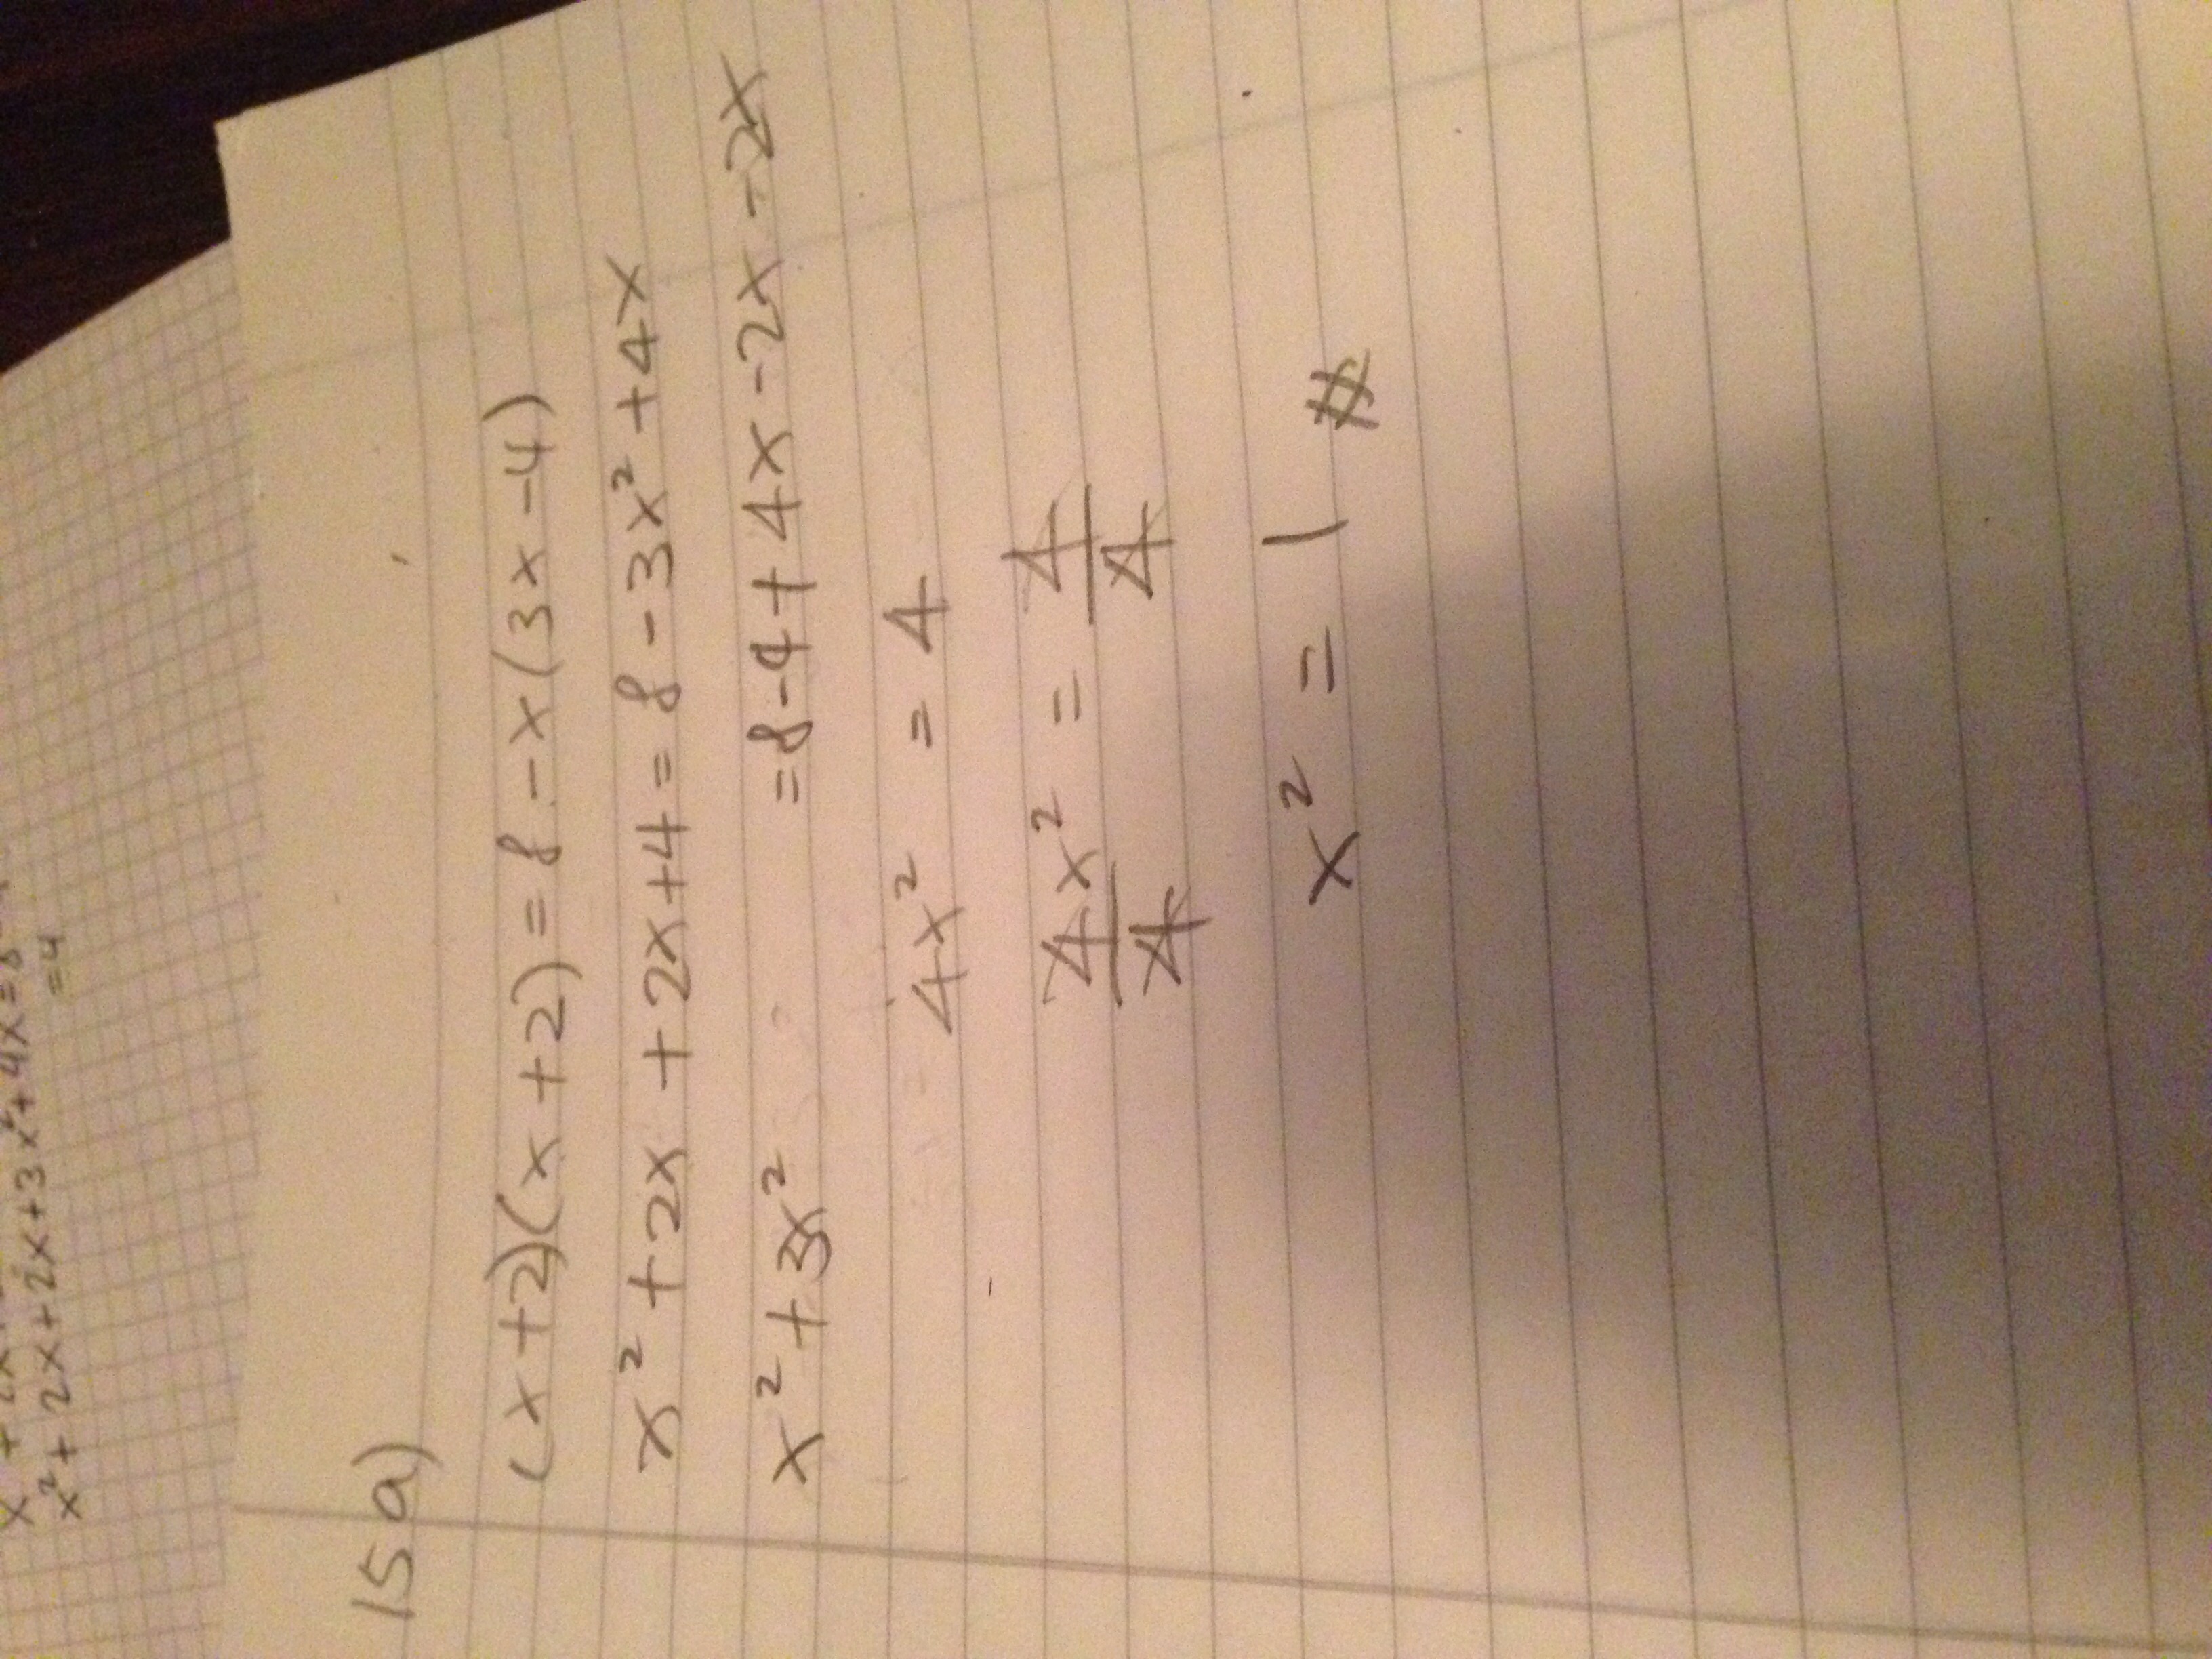 x² + 2x + 2x + 3x² + 4x = 8
= 4
15 a)
(x+2)(x+2) = 8 - x(3x-4)
x² + 2x + 2x + 4 = 8 - 3x² + 4x
x² + 3x² = 8 - 4 + 4x - 2x - 2x
4x² = 4
4x²/4 = 4/4
x² = 1 #